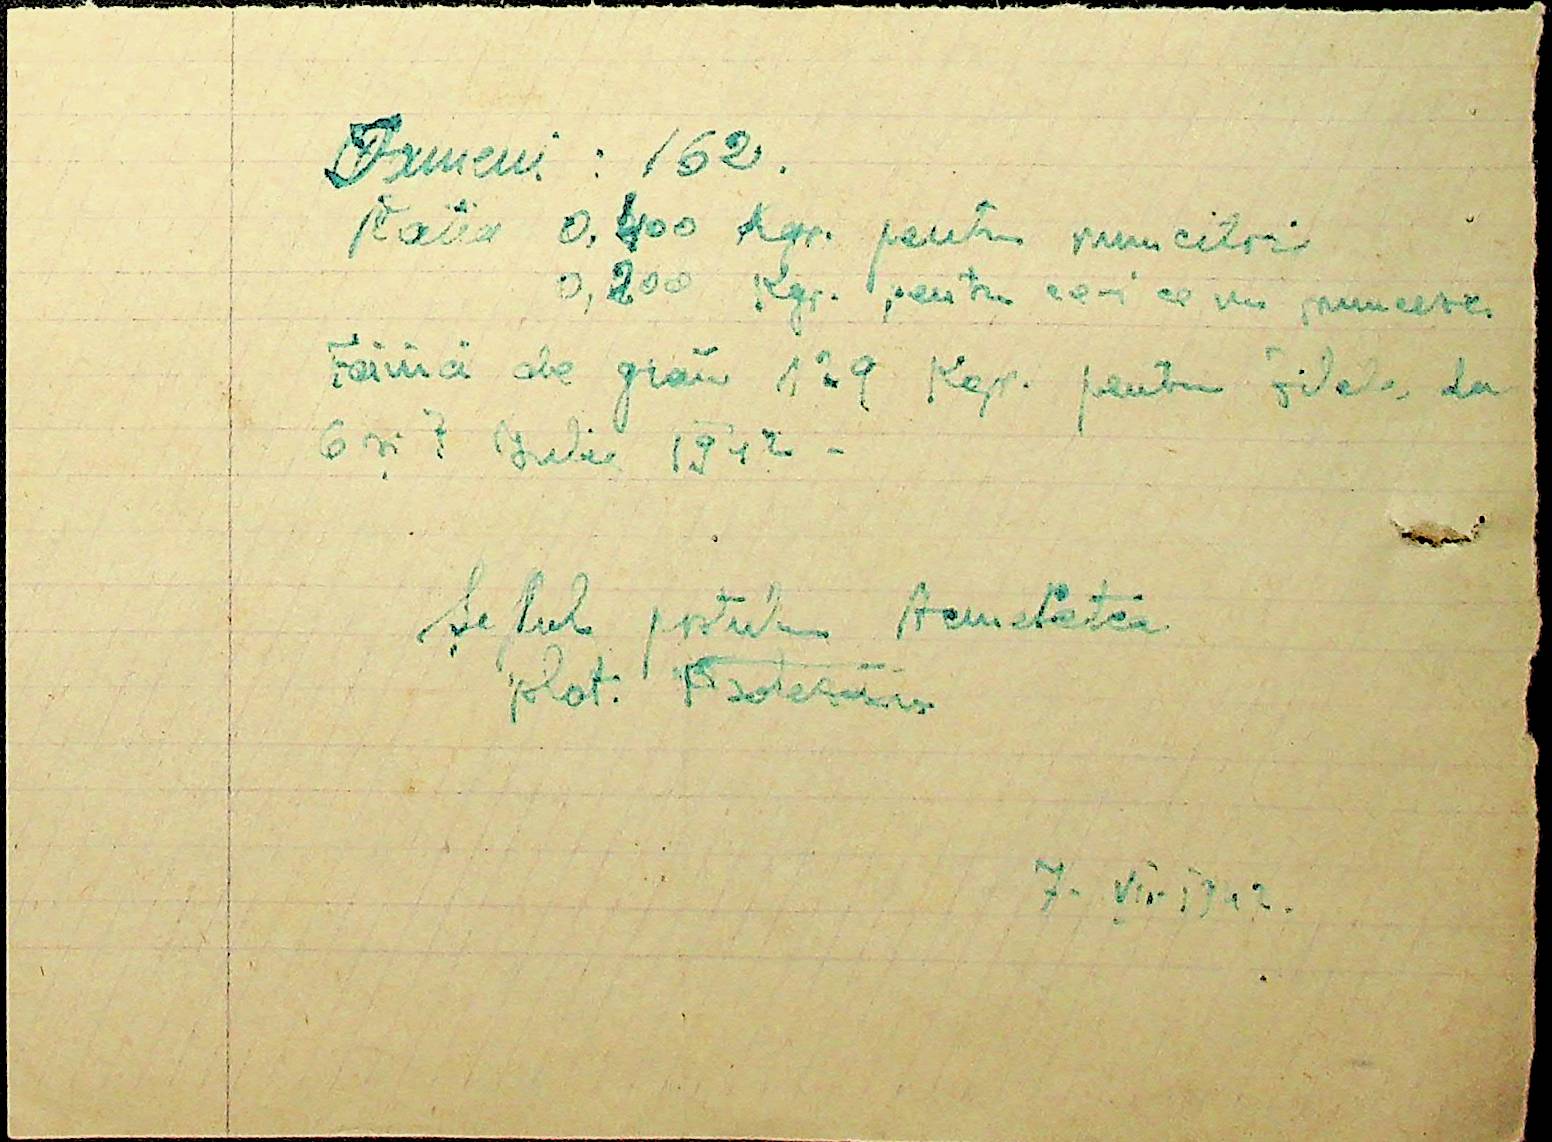 Oameni : 162.
Rația 0,400 Kgr. pentru muncitori
0,200 Kgr. pentru cei ce nu muncesc.
Făină de grâu 129 Kgr. pentru zilele de
6 și 7 Iulie 1942 -
Șeful postului Acmecetca
plot.
7 - VII - 1942.